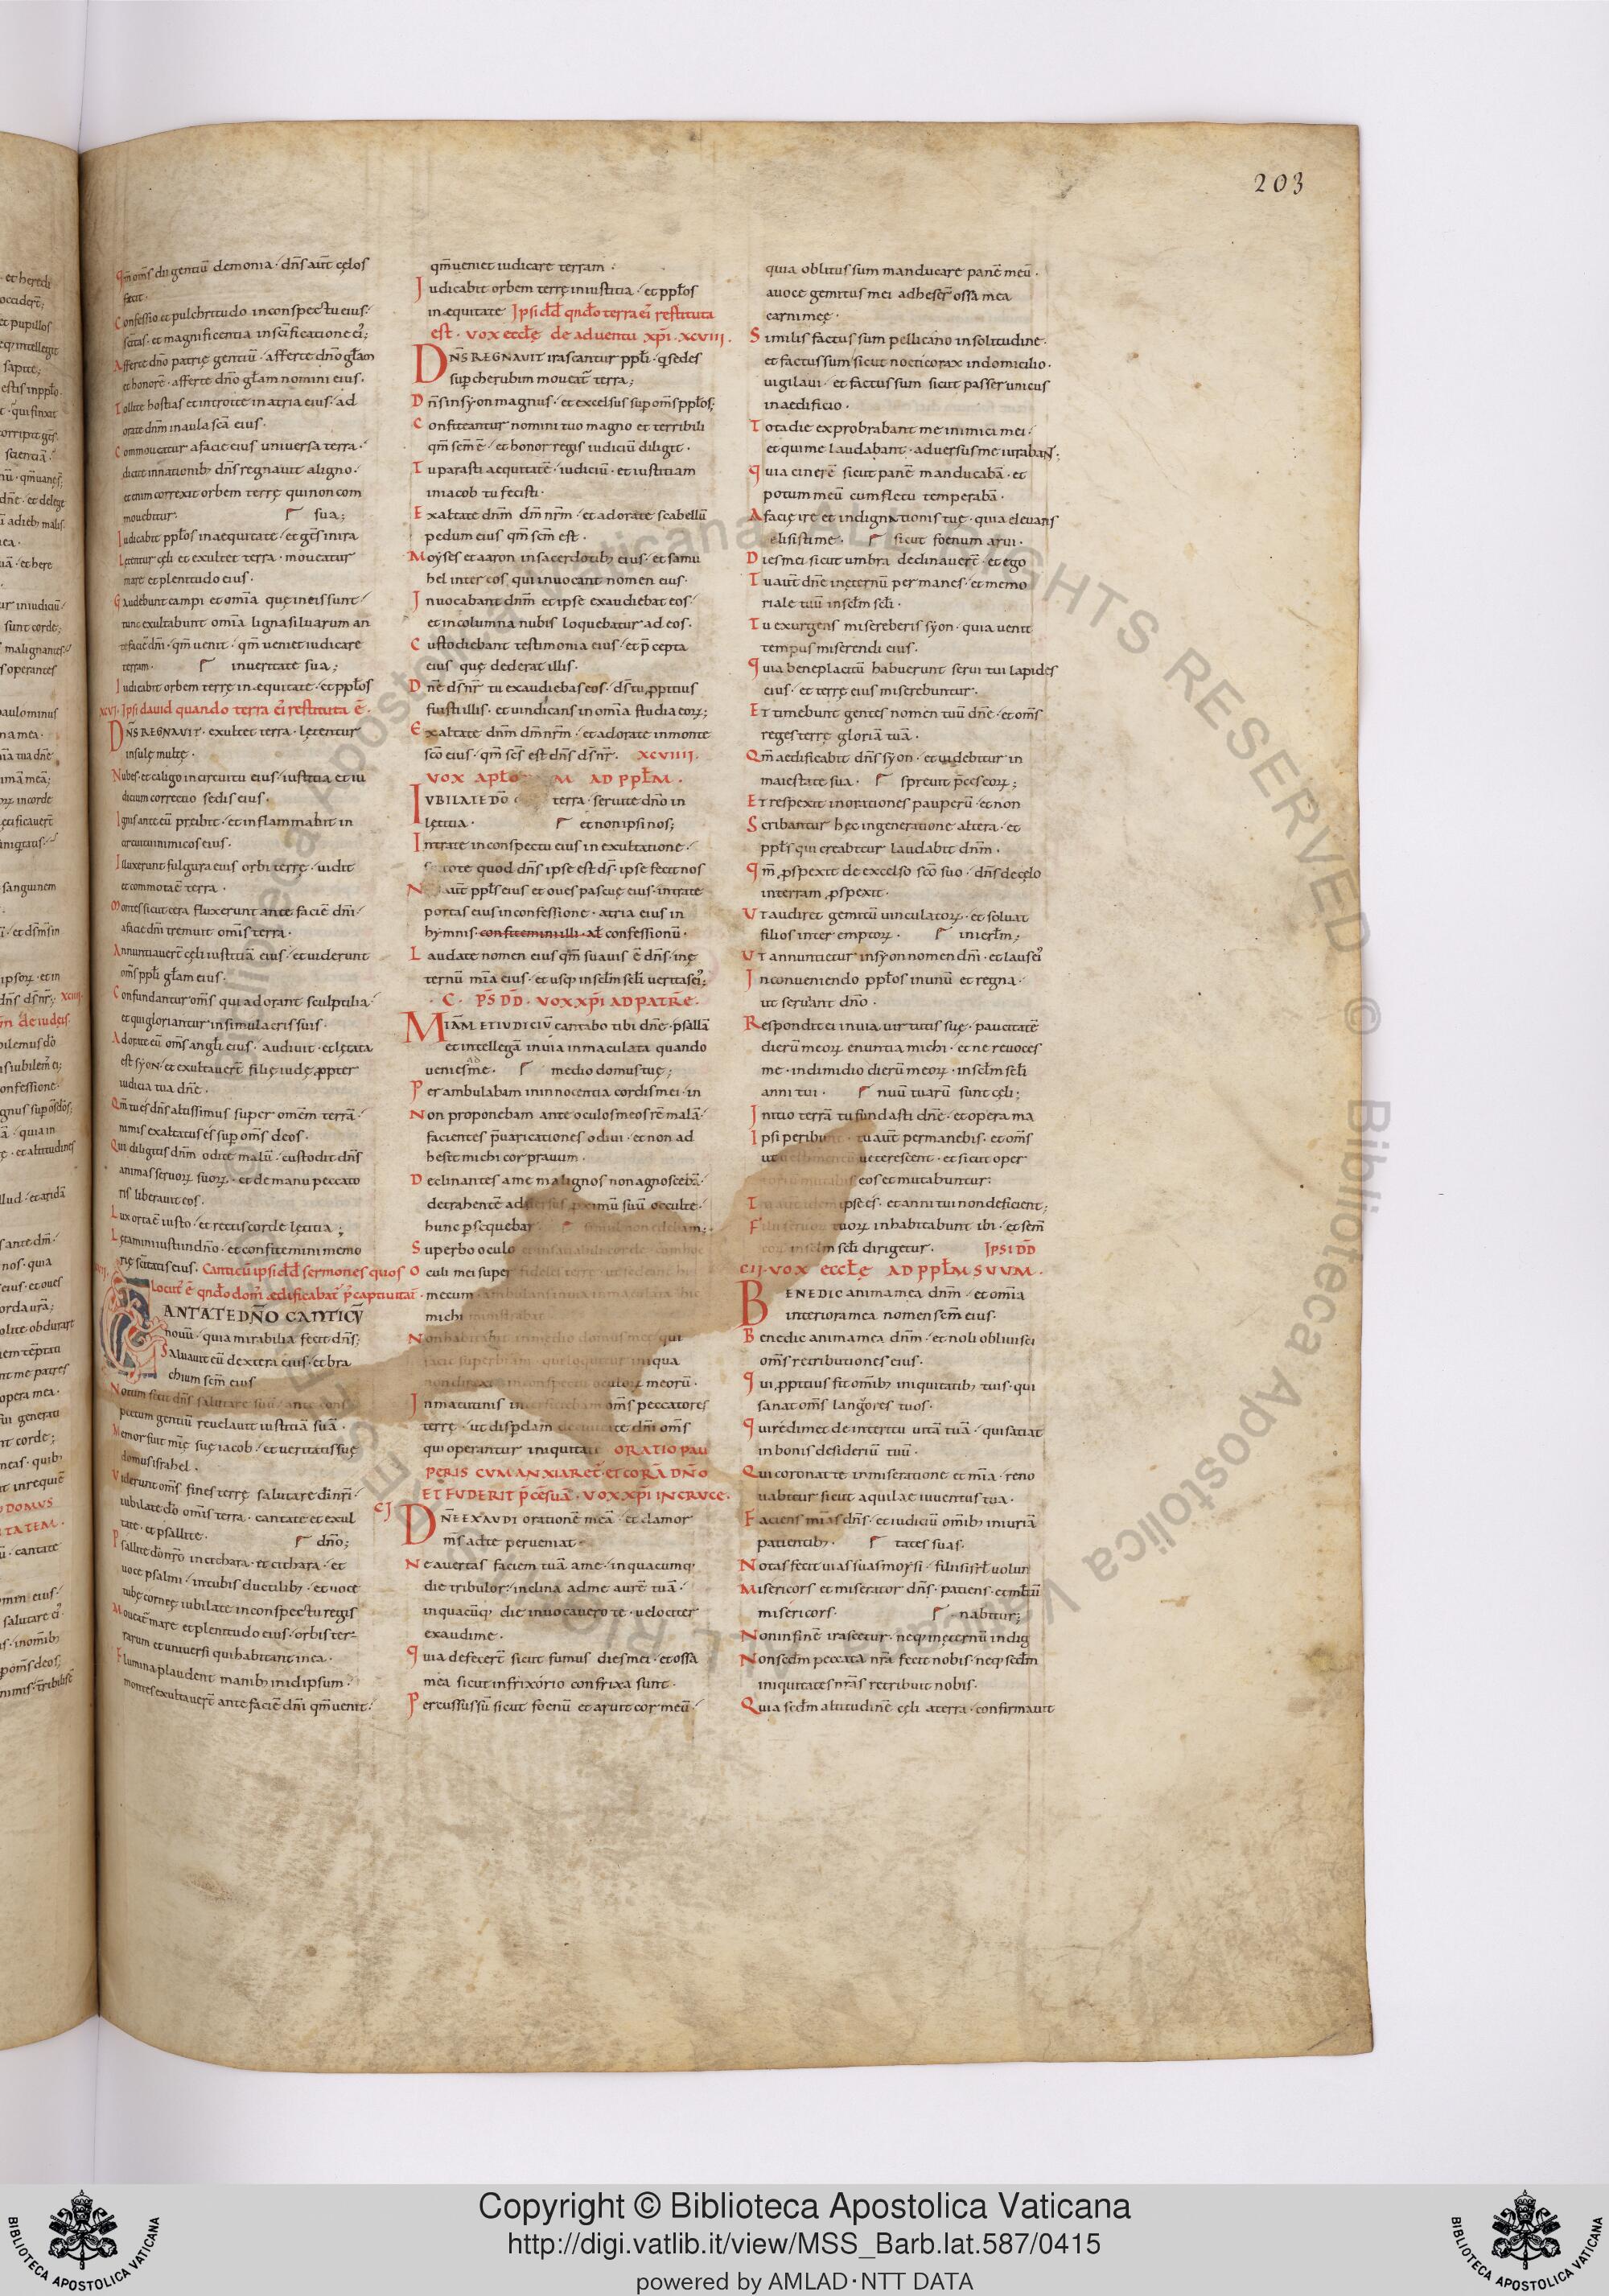 203
qm̄ om̄s dii gentiū demonia · dn̄s aut̄ cęlos
fecit ·
Confessio et pulchritudo in conspectu eius ·
sc̄itas · et magnificentia in sc̄ificatione ei᷒;
Afferte dn̄o patrię gentiū · afferte dn̄o gl̄am
et honorē · afferte dn̄o gl̄am nomini eius ·
Tollite hostias et introite in atria eius · ad
orate dn̄m in aula sc̄a eius ·
Commoueatur a facie eius universa terra ·
dicite in nationib; dn̄s regnauit a ligno ·
et enim correxit orbem terrę qui non com
mouebitur · sua;
Iudicabit ppl̄os in aequitate · et gt̄s in ira
Lętentur cęli et exultet terra · moueatur
mare et plenitudo eius ·
Gaudebunt campi et om̄ia quę in eis sunt
tunc exultabunt om̄ia ligna siluarum an
te faciē dn̄i · qm̄ uenit · qm̄ ueniet iudicare
terram · in ueritate sua;
Iudicabit orbem terrę in ęquitate · et ppl̄os
XCVI · Ipsi dauid quando terra ei᷒ restituta ē ·
DN̄S REGNAUIT · exultet terra · lętentur
insulę multę ·
Nubes · et caligo in circuitu eius · iustitia et iu
dicium correctio sedis eius ·
Ignis ante eū preibit · et inflammabit in
circuitu inimicos eius ·
Illuxerunt fulgura eius orbi terrę · uidit
et commota ē terra ·
Montes sicut cera fluxerunt ante faciē dn̄i ·
a facie dn̄i tremuit omis terra ·
Annuntiauer̄t cęli iustitiā eius · et uiderunt
om̄s ppl̄i gl̄am eius ·
Confundantur om̄s qui adorant sculptilia ·
et qui gloriantur in simulacris suis ·
Adorate eū om̄s angl̄i eius · audiuit · et lętata
est syon · et exultauer̄t filię iudę ꝓpter
iudicia tua dn̄e ·
Qm̄ tu es dn̄s altissimus super omem terrā ·
nimis exaltatus es sup om̄s deos ·
Qui diligitis dn̄m odite malū · custodit dn̄s
animas seruoꝝ suoꝝ · et de manu peccato
ris liberauit eos ·
Lux orta ē iusto · et rectis corde lętitia ;
Lętamini iusti in dn̄o · et confitemini memo
rię sc̄itatis eius · Canticū ipsi dd̄ sermones quos
locut᷒ ē qn̄do dom᷒ aedificabat᷒ p᷒ captiuitat̄ ·
CANTATE DN̄O CANTICV̄
nouū · quia mirabilia fecit dn̄s;
Saluauit eū dextera eius · et bra
chium sc̄m eius
Notum fecit dn̄s salutare suū · ante cons
pectum gentiū reuelauit iustitiā suā ·
Memor fuit mię suę iacob · et ueritatis suę
domui israhel ·
Viderunt om̄s fines terrę salutare di nr̄i ·
iubilate do̅ omis terra · cantate et exul
tate · et psallite · dn̄o;
Psallite dō nr̄o in cithara · te cithara · et
uoce psalmi · in tubis ductilib; · et uoce
tubę cornę iubilate in conspectu regis
Moueat̄ mare et plenitudo eius · orbis ter
rarum et uniuersi qui habitant in ea ·
Flumina plaudent manib; in idipsum ·
montes exultauer̄t ante faciē dn̄i qm̄ uenit ·
qm̄ ueniet iudicare terram :
Iudicabit orbem terrę in iustitia · et ppl̄os
in aequitate Ipsi dd̄ qn̄do terra ei᷒ restituta
est · vox eccl̄ę de aduentu xp̄i · XCVIII ·
DN̄S REGNAVIT irascantur ppl̄i · q sedes
sup cherubim moueat̄ terra;
Dn̄s in syon magnus · et excelsus sup om̄s ppl̄os;
Confiteantur nomini tuo magno et terribili
qm̄ sc̄m ē · et honor regis iudiciū diligit ·
Tu parasti aequitatē · iudiciū · et iustitiam
in iacob tu fecisti ·
Exaltate dn̄m dm̄ nr̄m · et adorate scabellū
pedum eius qm̄ sc̄m est ·
Moyses et aaron in sacerdotib; eius · et samu
hel inter eos qui inuocant nomen eius ·
Inuocabant dn̄m et ipse exaudiebat eos ·
et in columna nubis loquebatur ad eos ·
Custodiebant testimonia eius · et p̄cepta
eius quę dederat illis ·
Dn̄e ds̄ nr̄ tu exaudiebas eos · ds̄ tu ꝓpitius
fuisti illis · et uindicans in om̄ia studia eoꝝ;
Exaltate dn̄m dm̄ nr̄m · et adorate in monte
sc̄o eius · qm̄ sc̄s est dn̄s ds̄ nr̄ · XCVIIII ·
VOX APL̄O M AD PPL̄M ·
IVBILATE DŌ terra · seruite dn̄o in
lętitia · et non ipsi nos;
Intrate in conspectu eius in exultatione ·
quod dn̄s ipse est ds̄ · ipse fecit nos
N aut̄ ppl̄s eius et oues pascuę eius · intrate
portas eius in confessione · atria eius in
hymnis · confitemini illi · al̄ confessionū ·
Laudate nomen eius qm̄ suauis ē dn̄s · in ę
ternū mi̅a eius · et usq; in sel̄m sel̄i ueritas ei᷒;
· C · PS̄ DD̄ · VOX XP̄I AD PATRĒ ·
MIĀM ET IVDICIV̄ cantabo tibi dn̄e · psallā
et intellegā in uia inmaculata quando
uenies ad me · medio domus tuę;
Perambulabam in innocentia cordis mei · in
Non proponebam ante oculos meos rē malā ·
facientes p̄uaricationes odiui · et non ad
hesit michi cor prauum ·
Declinantes a me malignos non agnoscebā ·
detrahentē ad ꝓximū suū occulte ·
hunc psequebar
Superbo oculo
Oculi mei super
mecum · ambulans in uia inmaculata hic
michi ministrabat
Non habitabit in medio domus meę qui
facit superbiam · qui loquitur iniqua
non direxit in conspectu oculoꝝ meorū ·
In matutinis interficiebam om̄s peccatores
terrę · ut dispdam de ciuitate dn̄i om̄s
qui operantur iniquitatē ORATIO PAU
PERIS CVM ANXIARET᷒ · ET CORĀ DN̄O
ET FUDERIT P̄CĒ SUĀ · VOX XP̄I IN CRVCE ·
CI
DN̄E EXAUDI orationē meā · et clamor
m̄s ad te perueniat ·
Ne auertas faciem tuā a me · in quacumq;
die tribulor · inclina ad me aurē tuā ·
in quacūq; die inuocauero te · uelociter
exaudi me ·
Quia defecer̄t sicut fumus dies mei · et ossa
mea sicut in frixorio confrixa sunt ·
Percussus sū sicut foenū et aruit cor meū ·
quia oblitus sum manducare panē meū ·
a uoce gemitus mei adheser̄ ossa mea
carni meę ·
Similis factus sum pellicano in solitudine ·
et factus sum sicut nocticorax in domicilio ·
uigilaui · et factus sum sicut passer unicus
in aedificio ·
Tota die exprobrabant me inimici mei ·
et qui me laudabant · aduersus me iurabant;
Quia cinerē sicut panē manducabā · et
potum meū cum fletu temperabā ·
A facię irę et indignationis tuę · quia eleuans
elisisti me · sicut foenum arui ·
Dies mei sicut umbra declinauer̄t · et ego
Tu aut̄ dn̄e in ęternū permanes · et memo
riale tuū in sel̄m sel̄i ·
Tu exurgens misereberis syon · quia uenit
tempus miserendi eius ·
Quia beneplacitū habuerunt serui tui lapides
eius · et terrę eius miserebuntur ·
Et timebunt gentes nomen tuū dn̄e · et om̄s
reges terrę gloriā tuā ·
Qm̄ aedificabit dn̄s syon · et uidebitur in
maiestate sua · spreuit p̄ces eoꝝ;
Et respexit in orationes pauperū · et non
Scribantur hęc in generatione altera · et
ppl̄s qui creabitur laudabit dn̄m ·
Qm̄ ꝓspexit de excelso sc̄o suo · dn̄s de cęlo
in terram ꝓspexit ·
Vt audiret gemitū uinculatoꝝ · et soluat
filios interemptoꝝ · in ierl̄m;
Vt annuntietur in syon nomen dn̄i · et laus ei᷒
In conueniendo ppl̄os in unū et regna ·
ut seruiant dn̄o ·
Respondit ei in uia uirtutis suę · paucitatē
dierū meoꝝ enuntia michi · et ne reuoces
me · in dimidio dierū meoꝝ · in sel̄m sel̄i
anni tui · nuū tuarū sunt cęli;
Initio terrā tu fundasti dn̄e · et opera ma
Ipsi peribunt · tu aut̄ permanebis · et om̄s
ut ueterescent · et sicut oper
eos et mutabuntur:
ipse es · et anni tui non deficient;
Filii seruoꝝ tuoꝝ inhabitabunt ibi · et sem̄
in sel̄m sel̄i dirigetur · IPSI DD̄
CII · VOX ECCL̄Ę AD PPL̄M SUUM ·
BENEDIC anima mea dn̄m · et om̄ia
interiora mea nomen sc̄m eius ·
Benedic anima mea dn̄m · et noli obliuisci
om̄s retributiones eius ·
Qui ꝓpitius fit om̄ib; iniquitatib; tuis · qui
sanat om̄s langores tuos ·
Qui redimet de interitu uitā tuā · qui satiat
in bonis desideriū tuū ·
Qui coronat te in miseratione et mi̅a · reno
uabitur sicut aquilae iuuentus tua ·
Faciens mi̅as dn̄s · et iudiciū om̄ib; iniuriā
patientib; · tates suas ·
Notas fecit uias suas moysi · filiis isrl̄ uolun
Misericors et miserator dn̄s · patiens · et multū
misericors · nabitur;
Non in finē irascetur · neq; in ęternū indig
Non sedm̄ peccata nr̄a fecit nobis · neq; sedm̄
iniquitates nr̄as retribuit nobis ·
Quia sedm̄ altitudinē cęli a terra · confirmauit
Copyright © Biblioteca Apostolica Vaticana
http://digi.vatlib.it/view/MSS_Barb.lat.587/0415
powered by AMLAD·NTT DATA
BIBLIOTECA APOSTOLICA VATICANA
BIBLIOTECA APOSTOLICA VATICANA